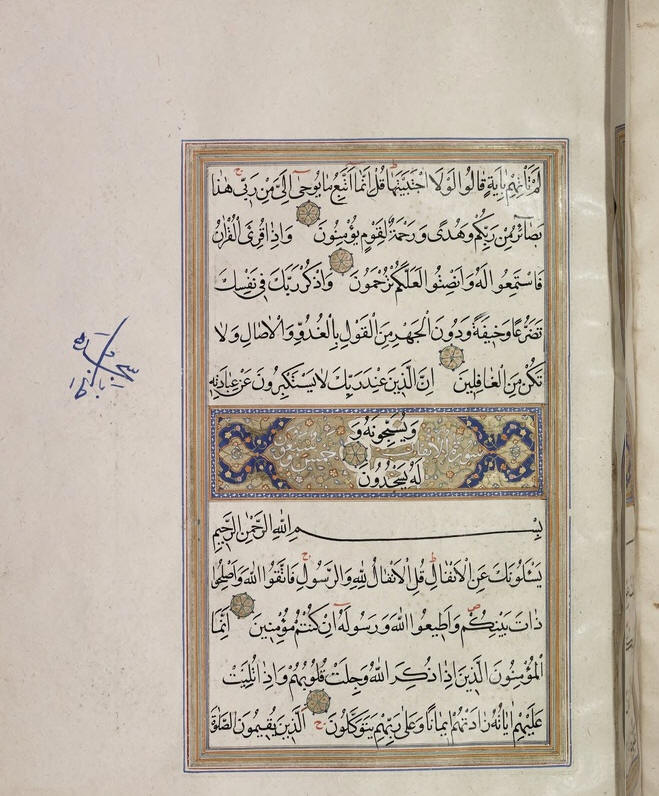 لَمْ تَأْتِهِمْ بِاٰيَةٍ قَالُوا لَوْلَا اجْتَبَيْتَهَا قُلْ اِنَّمَا اَتَّبِعُ مَا يُوحٰى اِلَىَّ مِنْ رَبّٖى هٰذَا
بَصَائِرُ مِنْ رَبِّكُمْ وَهُدًى وَرَحْمَةٌ لِقَوْمٍ يُؤْمِنُونَ وَاِذَا قُرِئَ الْقُرْاٰنُ
فَاسْتَمِعُوا لَهُ وَاَنْصِتُوا لَعَلَّكُمْ تُرْحَمُونَ وَاذْكُرْ رَبَّكَ فِى نَفْسِكَ
تَضَرُّعًا وَخِيفَةً وَدُونَ الْجَهْرِ مِنَ الْقَوْلِ بِالْغُدُوِّ وَالْاٰصَالِ وَلَا
تَكُنْ مِنَ الْغَافِلِينَ اِنَّ الَّذِينَ عِنْدَ رَبِّكَ لَا يَسْتَكْبِرُونَ عَنْ عِبَادَتِهِ
وَيُسَبِّحُونَهُ وَ
سورة الانفال
لَهُ يَسْجُدُونَ
بِسْمِ اللّٰهِ الرَّحْمٰنِ الرَّحِيمِ
يَسْئَلُونَكَ عَنِ الْاَنْفَالِ قُلِ الْاَنْفَالُ لِلّٰهِ وَالرَّسُولِ فَاتَّقُوا اللّٰهَ وَاَصْلِحُوا
ذَاتَ بَيْنِكُمْ وَاَطِيعُوا اللّٰهَ وَرَسُولَهُ اِنْ كُنْتُمْ مُؤْمِنِينَ اِنَّمَا
الْمُؤْمِنُونَ الَّذِينَ اِذَا ذُكِرَ اللّٰهُ وَجِلَتْ قُلُوبُهُمْ وَاِذَا تُلِيَتْ
عَلَيْهِمْ اٰيَاتُهُ زَادَتْهُمْ اِيمَانًا وَعَلٰى رَبِّهِمْ يَتَوَكَّلُونَ اَلَّذِينَ يُقِيمُونَ الصَّلٰوةَ